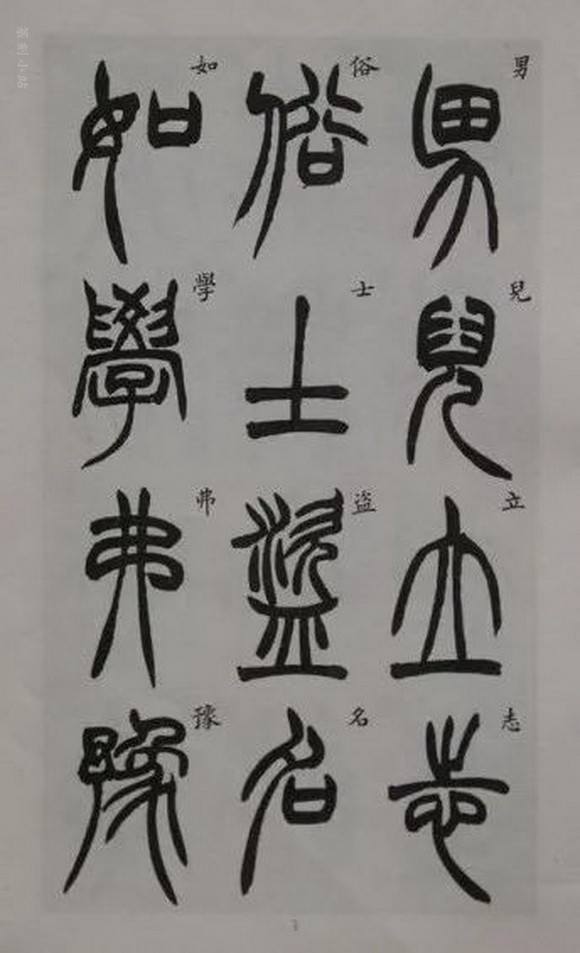 男兒立志
俗士盜名
如學弗豫